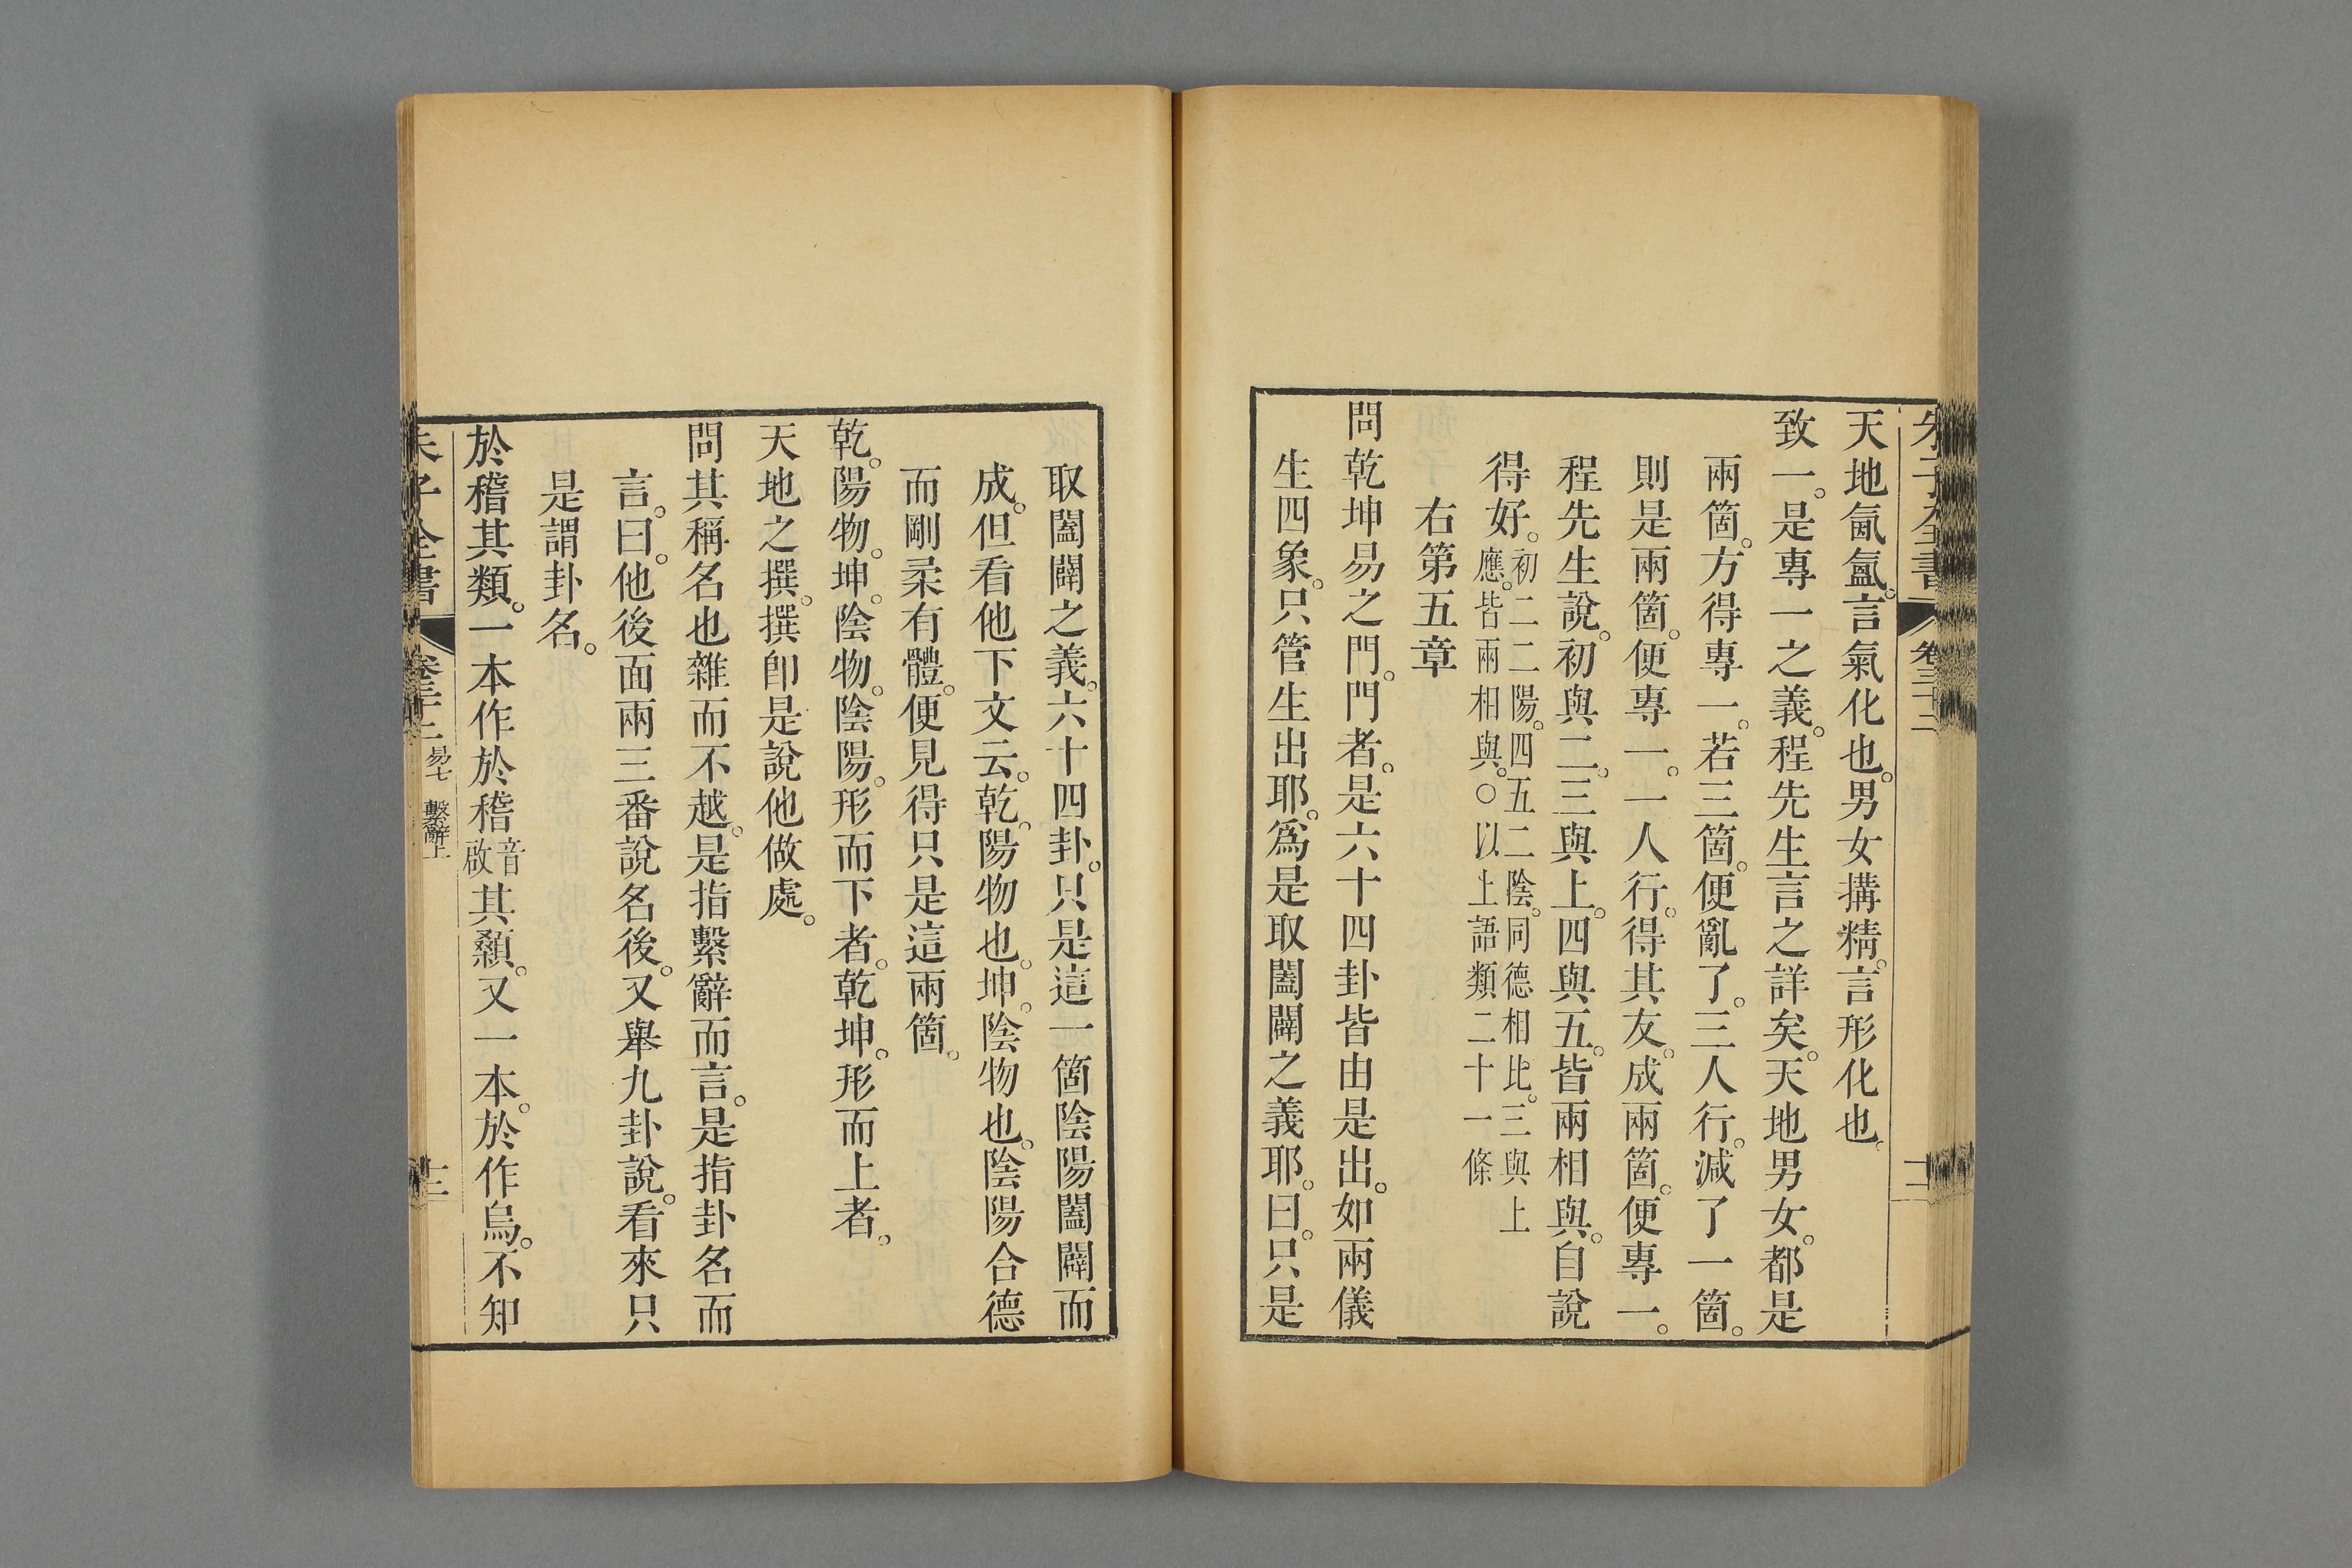 朱子全書 卷三十二
天地氤氳。言氣化也。男女搆精。言形化也。
致一。是專一之義。程先生言之詳矣。天地男女。都是
兩箇。方得專一。若三箇。便亂了。三人行。減了一箇。
則是兩箇。便專一。一人行。得其友。成兩箇。便專一。
程先生說。初與二。三與上。四與五。皆兩相與。自說
得好。初二二陽。四五二陰。同德相比。三與上
應。皆兩相與。○以上語類二十一條
右第五章
問乾坤易之門。門者。是六十四卦皆由是出。如兩儀
生四象。只管生出耶。爲是取闔闢之義耶。曰。只是
取闔闢之義。六十四卦。只是這一箇陰陽闔闢而
成。但看他下文云。乾。陽物也。坤。陰物也。陰陽合德
而剛柔有體。便見得只是這兩箇。
乾。陽物。坤。陰物。陰陽。形而下者。乾坤。形而上者。
天地之撰。撰卽是說他做處。
問其稱名也雜而不越。是指繫辭而言。是指卦名而
言。曰。他後面兩三番說名後。又舉九卦說。看來只
是謂卦名。
於稽其類。一本作於稽音啟其顙。又一本。於作烏。不知
朱子全書 卷三十二 易七 繫辭上 十二